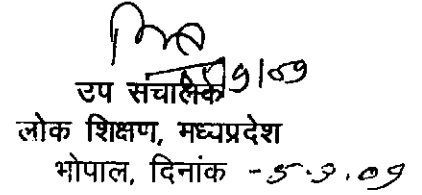 9/09
उप संचालक
लोक शिक्षण, मध्यप्रदेश
भोपाल, दिनांक -5.9.09